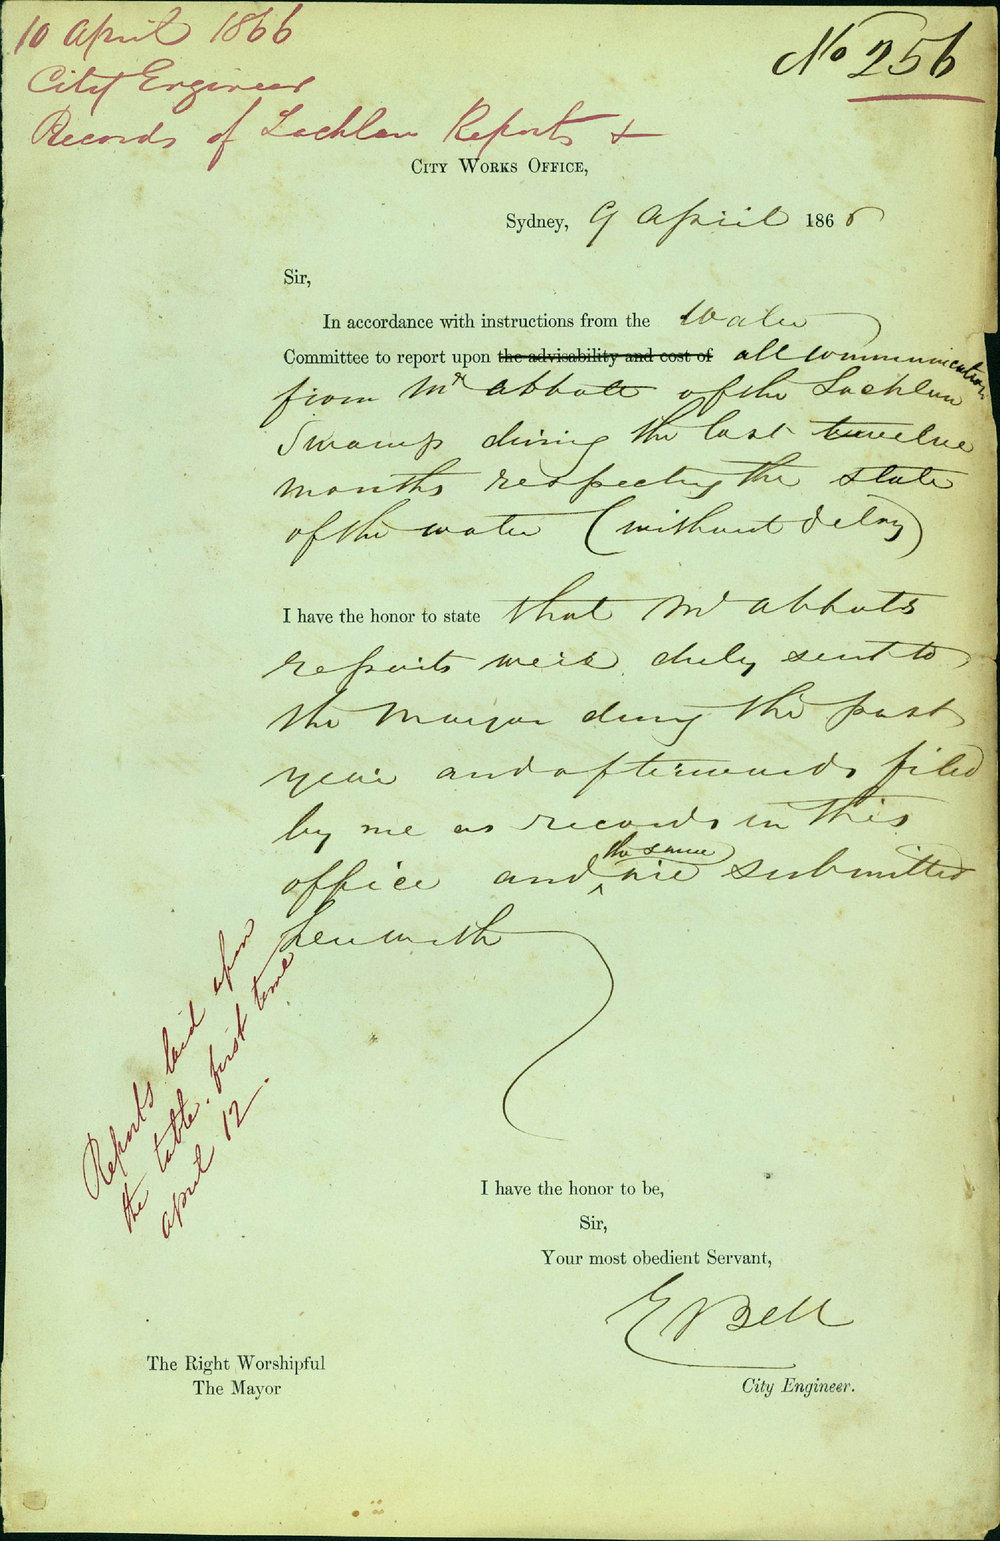 10 April 1866
City Engineer
Records of Lachlan Reports &
No 256
City Works Office,
Sydney, 9 April 1866
Sir,
In accordance with instructions from the Water
Committee to report upon the advisability and cost of all communications
from Mr Abbott of the Lachlan
Swamp during the last twelve
months respecting the state
of the water (without delay)
I have the honor to state that Mr Abbotts
reports were duly sent to
the Mayor during the past
year and afterwards filed
by me as records in this
office and the same are submitted
herewith
Reports laid upon
the table. first time
April 12.
I have the honor to be,
Sir,
Your most obedient Servant,
E Bell
City Engineer.
The Right Worshipful
The Mayor